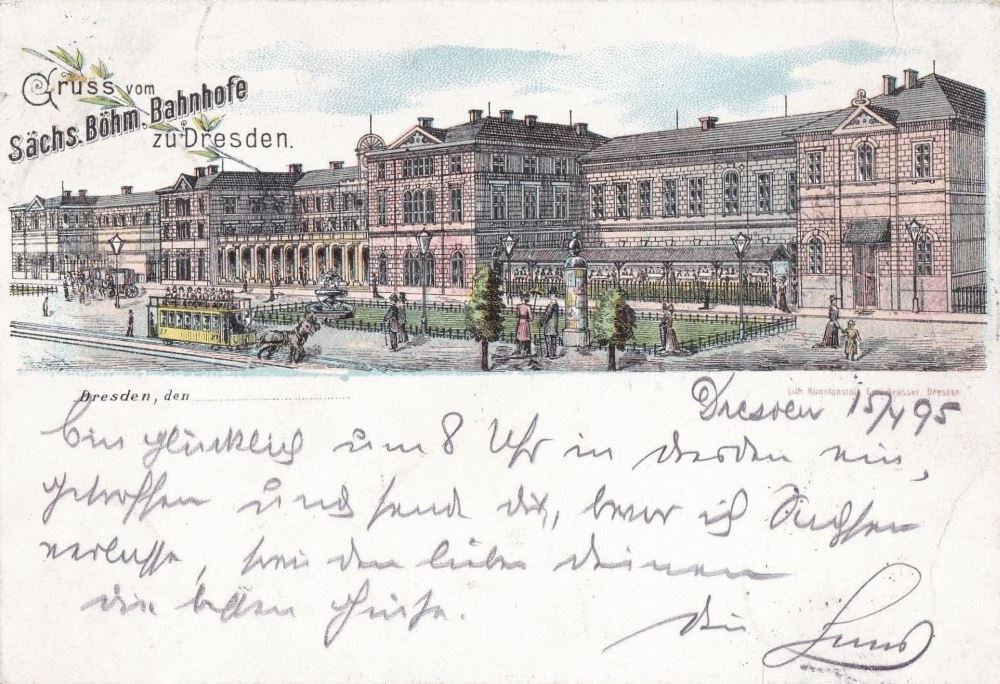 Gruss vom
Sächs. Böhm. Bahnhofe
zu Dresden.
Dresden, den
Lith. Kunstanstalt Emil Grosser, Dresden.
Dresden 15/4 95
Bin glücklich um 8 Uhr in Dresden ein,
getroffen und sende dir, bevor ich Sachsen
verlasse, die lieben deinen
die besten Grüße.